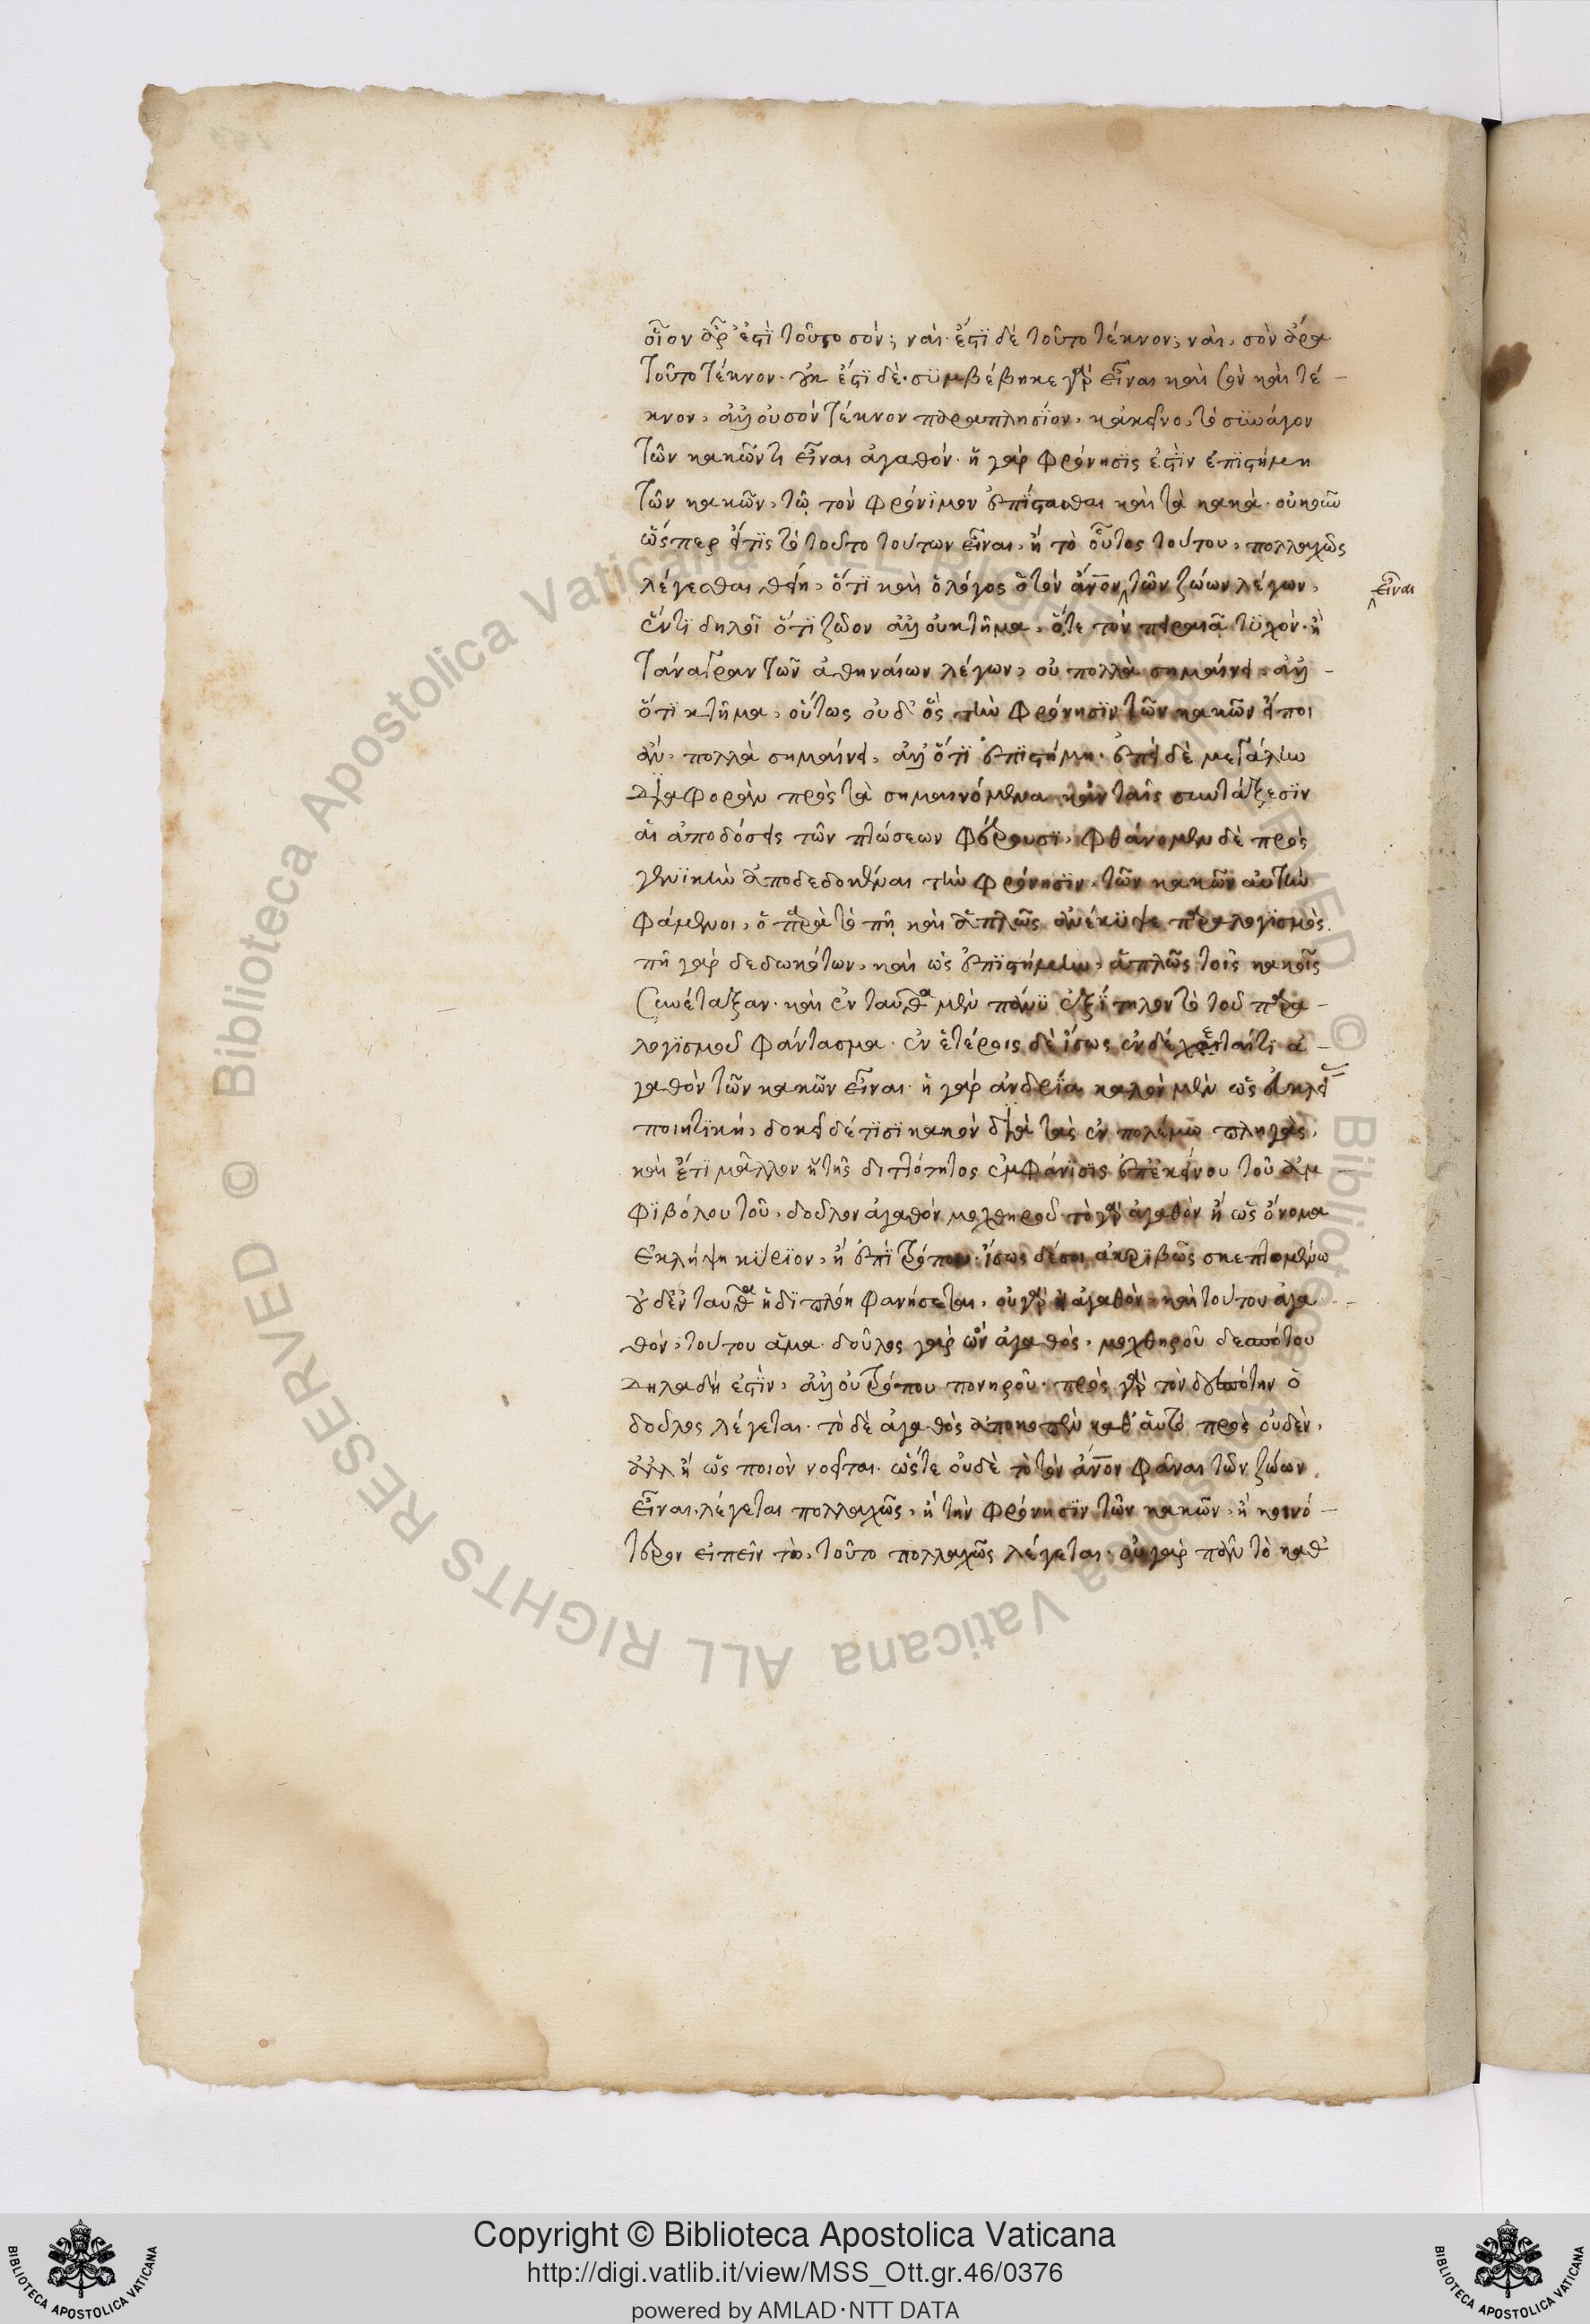 οἷον ἆρ' ἐστὶ τοῦτο σόν; ναί. ἔστι δὲ τοῦτο τέκνον; ναί, σὸν ἄρα
τοῦτο τέκνον. οὐκ ἔστι δέ. συμβέβηκε γὰρ εἶναι καὶ σὸν καὶ τέ-
κνον, ἀλλ' οὐ σὸν τέκνον παραπλησίον, κἀκεῖνο, τὸ συνάγον
τῶν κακῶν τι εἶναι ἀγαθόν. ἡ γὰρ φρόνησίς ἐστιν ἐπιστήμη
τῶν κακῶν, τῷ τὸν φρόνιμον ἐπίστασθαι καὶ τὰ κακά. οὐκοῦν
ὥσπερ εἴ τις τὸ τοῦτο τούτων εἶναι, ἢ τὸ οὗτος τούτου, πολλαχῶς
λέγεσθαι θείη, ὅτι καὶ ὁ λόγος ὁ τὸν ἄνον τῶν ζώων λέγων,
ἕν τι δηλοῖ ὅτι ζῶον ἀλλ' οὐ κτῆμα, ὅτε τὸν πειραιᾶ τυχόν. ἢ
τάναγραν τῶν ἀθηναίων λέγων, οὐ πολλὰ σημαίνει, ἀλλ'
ὅτι κτῆμα, οὕτως οὐδ' ὃς τὴν φρόνησιν τῶν κακῶν εἴποι
ἄν, πολλὰ σημαίνει, ἀλλ' ὅτι ἐπιστήμη. ἐπεὶ δὲ μεγάλην
διαφορὰν πρὸς τὰ σημαινόμενα κἀν ταῖς συντάξεσιν
αἱ ἀποδόσεις τῶν πτώσεων φέρουσι, φθάνομεν δὲ πρὸς
γενικὴν ἀποδεδοκέναι τὴν φρόνησιν, τῶν κακῶν αὐτὴν
φάμενοι, ὁ παρὰ τὸ πῇ καὶ ἁπλῶς ἀνέκυψε παραλογισμός.
πῇ γὰρ δεδωκότων, καὶ ὡς ἐπιστήμην, ἁπλῶς τοῖς κακοῖς
συνέταξαν. καὶ ἐνταῦθα μὲν πάνυ ἐξίτηλον τὸ τοῦ παρα-
λογισμοῦ φάντασμα. ἐν ἑτέροις δὲ ἴσως ἐνδέχεται τι ἀ-
γαθὸν τῶν κακῶν εἶναι. ἡ γὰρ ἀνδρία καλὸν μὲν ὡς
ποιητική, δοκεῖ δέ τισι κακὸν διὰ τὰς ἐν πολέμω πληγάς,
καὶ ἔτι μᾶλλον ἡ τῆς διπλότητος ἐμφάνισις ἐπ' ἐκείνου τοῦ ἀμ-
φιβόλου τοῦ, δοῦλον ἀγαθὸν μοχθηροῦ. τὸ γὰρ ἀγαθὸν ἢ ὡς ὄνομα
ἐκλήψῃ κύριον, ἢ ἐπὶ τρόπου. ἴσως δέ σοι ἀκριβῶς σκεπτομένω
οὐδ' ἐνταῦθα ἡ διπλόη φανήσεται, οὐ γὰρ ἢ ἀγαθὸν καὶ τούτου ἀγα-
θόν, τούτου ἅμα. δοῦλος γὰρ ὢν ἀγαθός, μοχθηροῦ δεσπότου
δηλαδή ἐστιν, ἀλλ' οὐ τρόπου πονηροῦ. πρὸς γὰρ τὸν δεσπότην ὁ
δοῦλος λέγεται. τὸ δὲ ἀγαθὸς ἀποκοπὲν καθ' αὑτὸ πρὸς οὐδὲν,
ἀλλ' ἢ ὡς ποιὸν νοεῖται. ὥστε οὐδὲ τὸ τὸν ἄνον φᾶναι τῶν ζώων
εἶναι, λέγεται πολλαχῶς, ἢ τὴν φρόνησιν τῶν κακῶν, ἢ κοινό-
τερον εἰπεῖν τὸ, τοῦτο πολλαχῶς λέγεται. οὐ γὰρ πᾶν τὸ καθ'
εἶναι
Copyright © Biblioteca Apostolica Vaticana
http://digi.vatlib.it/view/MSS_Ott.gr.46/0376
powered by AMLAD·NTT DATA
© Biblioteca Apostolica Vaticana ALL RIGHTS RESERVED
© Biblioteca Apostolica Vaticana ALL RIGHTS RESERVED
BIBLIOTECA APOSTOLICA VATICANA
BIBLIOTECA APOSTOLICA VATICANA